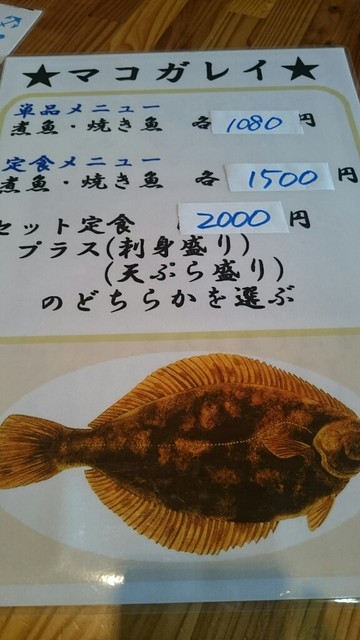 ★マコガレイ★
単品メニュー
煮魚・焼き魚 各 1080 円
定食メニュー
煮魚・焼き魚 各 1500 円
セット定食 2000 円
プラス(刺身盛り)
(天ぷら盛り)
のどちらかを選ぶ